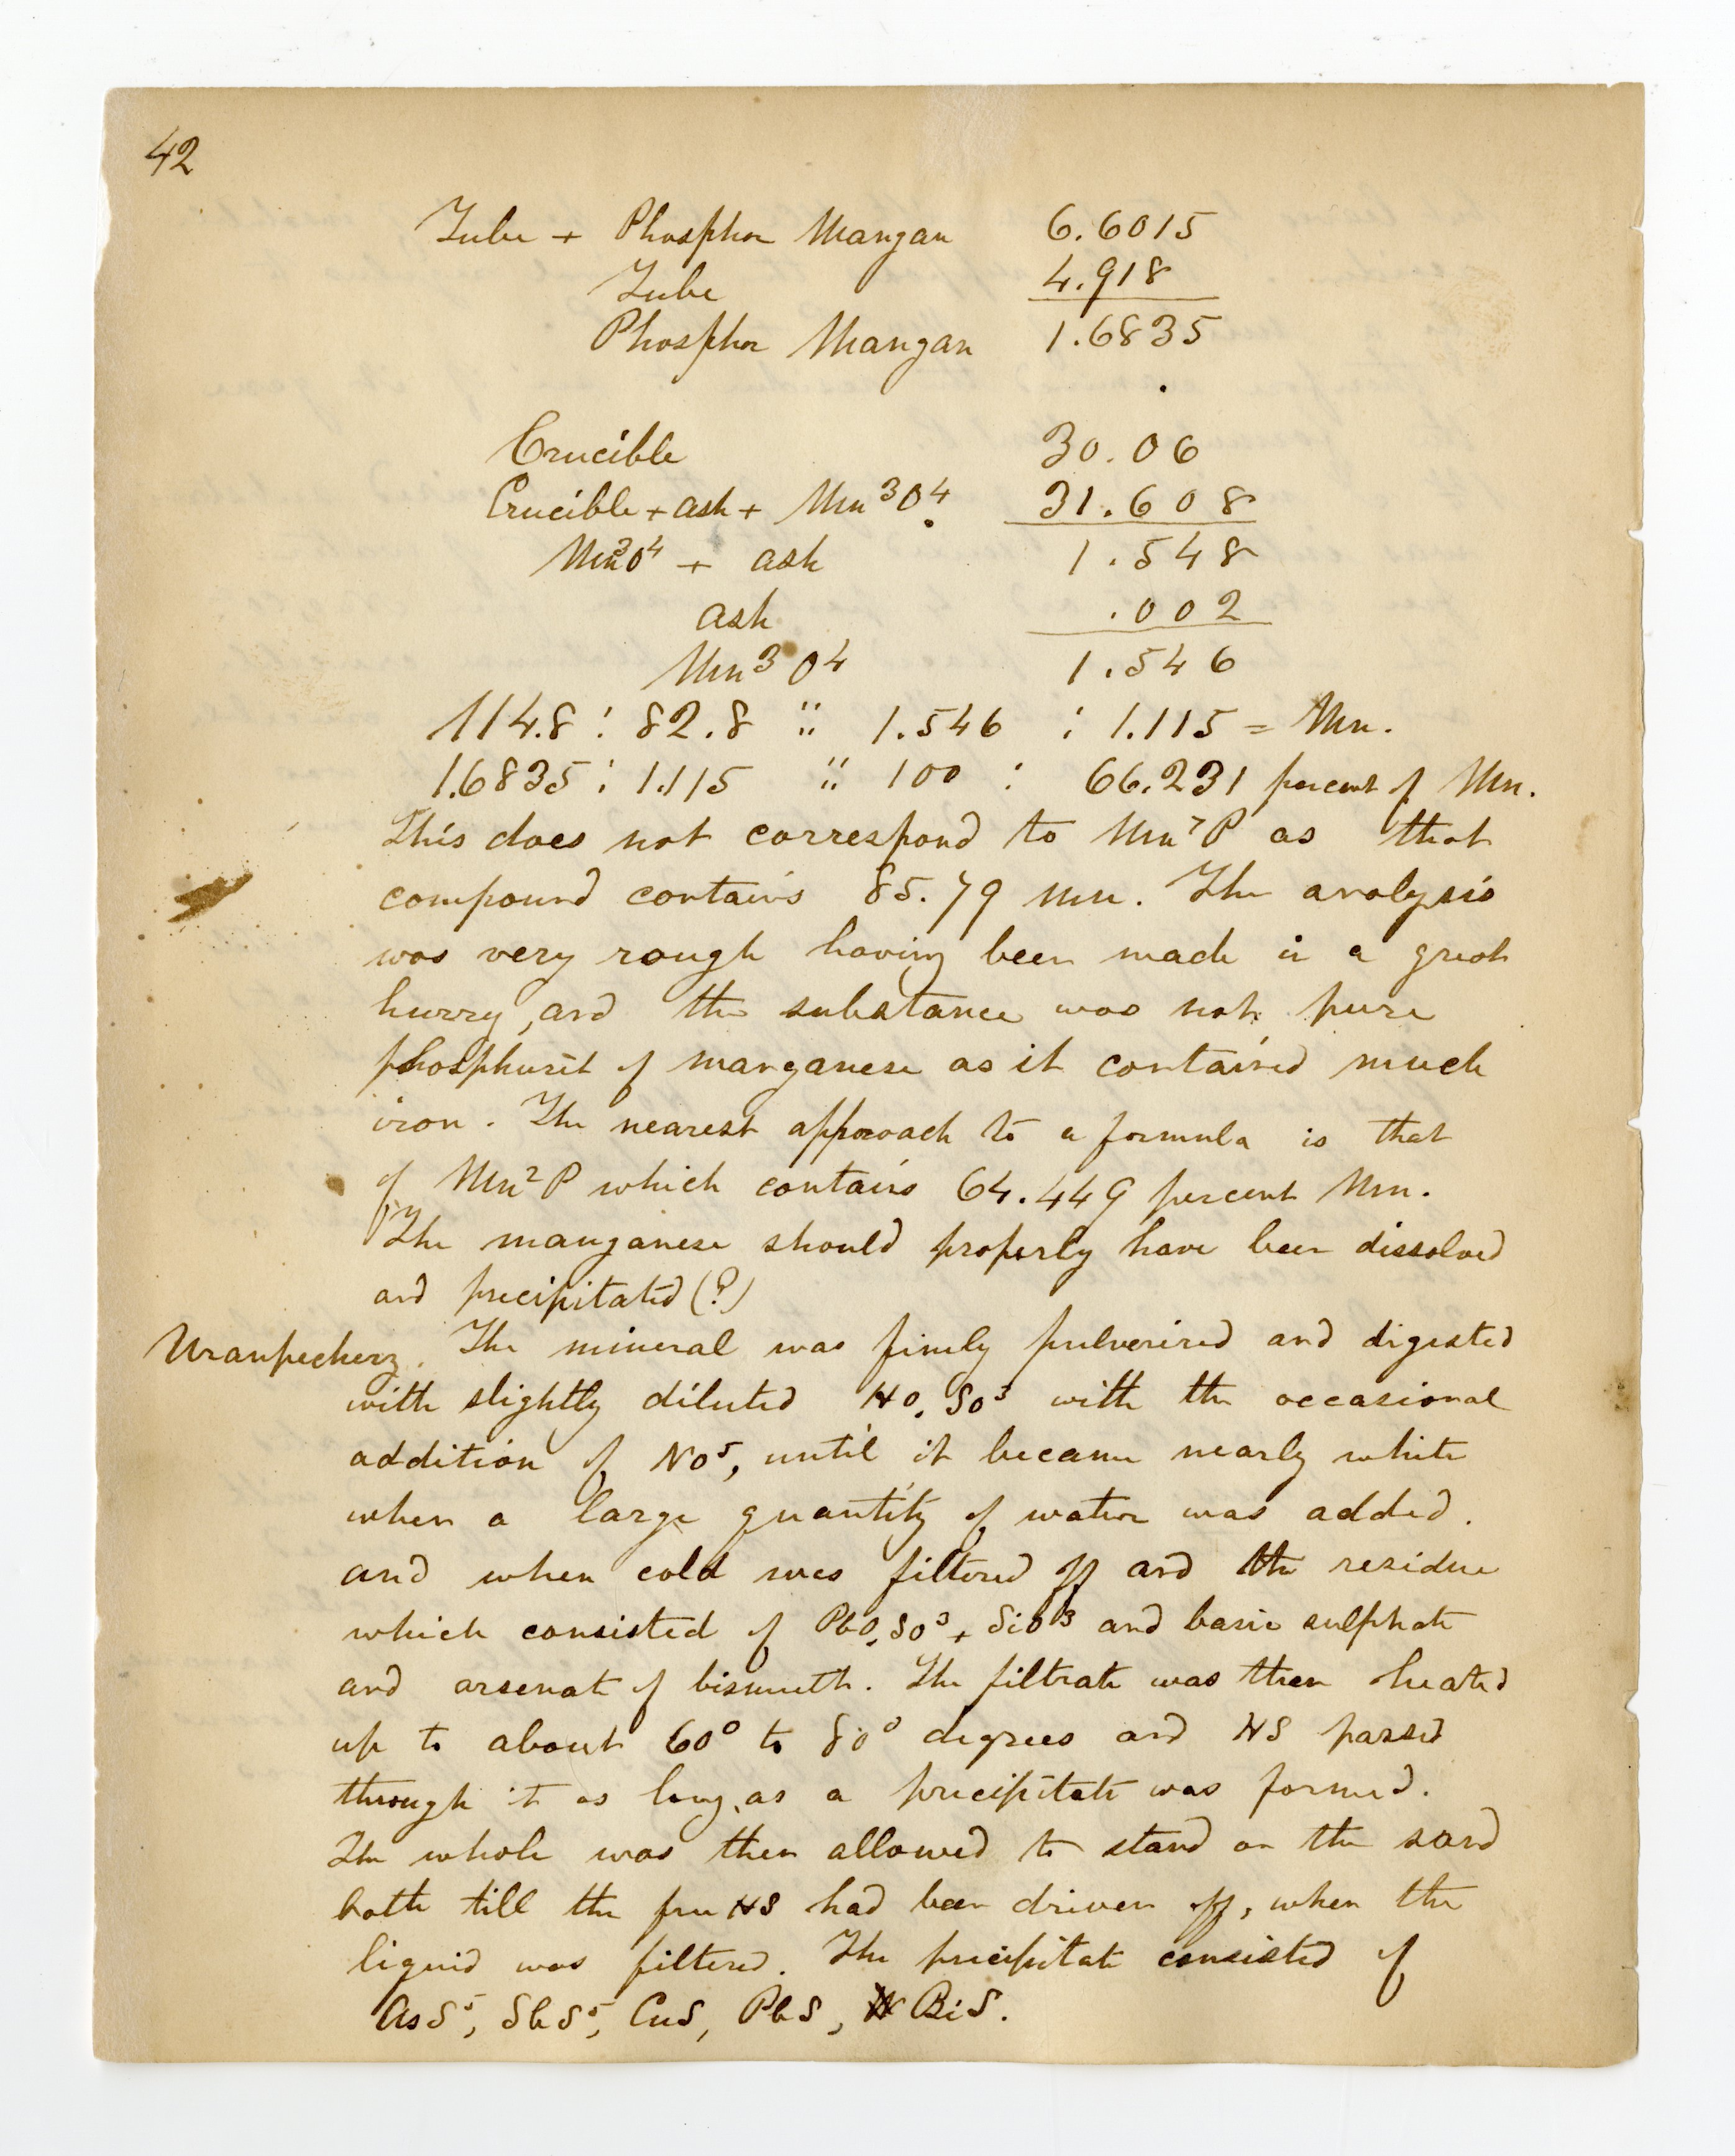 42
Tube + Phosphor Mangan 6.6015
Tube 4.918
Phosphor Mangan 1.6835
Crucible 30.06
Crucible + ash + Mn³O⁴. 31.608
Mn³O⁴ + ash 1.548
ash .002
Mn³O⁴ 1.546
114.8 : 82.8 :: 1.546 : 1.115 = Mn.
1.6835 : 1.115 :: 100 : 66.231 percent of Mn.
This does not correspond to Mn⁷P as that
compound contains 85.79 Mn. The analysis
was very rough having been made in a great
hurry, and the substance was not pure
phosphuret of manganese as it contained much
iron. The nearest approach to a formula is that
of Mn²P which contains 64.449 percent Mn.
The manganese should properly have been dissolved
and precipitated (?)
Uranpecherz. The mineral was finely pulverized and digested
with slightly diluted HO.SO³ with the occasional
addition of NO⁵, until it became nearly white
when a large quantity of water was added.
and when cold was filtered off and the residue
which consisted of PbO.SO³ + SiO³ and basic sulphate
and arsenate of bismuth. The filtrate was then heated
up to about 60° to 80° degrees and HS passed
through it as long as a precipitate was formed.
The whole was then allowed to stand on the sand
bath till the free HS had been driven off, when the
liquid was filtered. The precipitate consisted of
AsS⁵, SbS⁵, CuS, PbS, BiS.